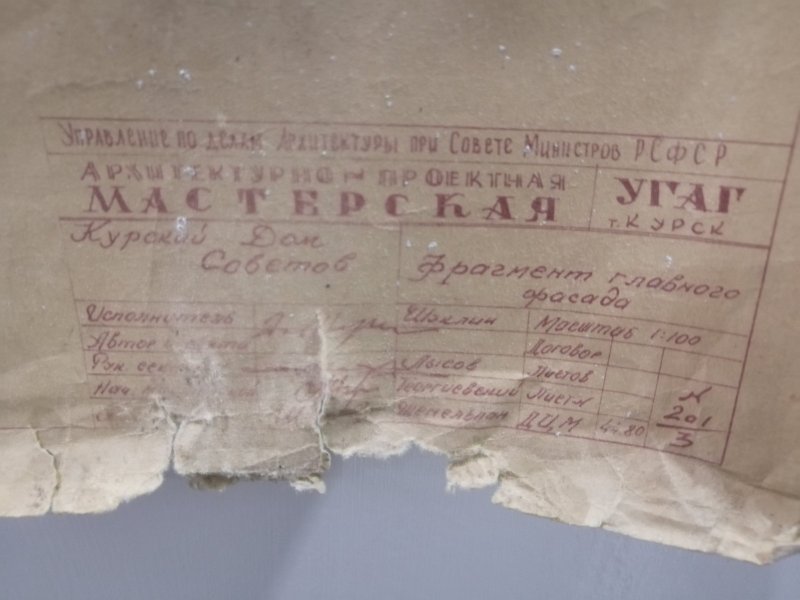 Управление по делам Архитектуры при Совете Министров РСФСР
АРХИТЕКТУРНО-ПРОЕКТНАЯ
МАСТЕРСКАЯ
УГАГ
г. КУРСК
Курский Дом
Советов
Фрагмент главного
фасада
Исполнитель Шклин Масштаб 1:100
Автор Договор
Рук Лысов Листов
Нач Георгиевский Лист №
ДЦМ 44.80
201
3